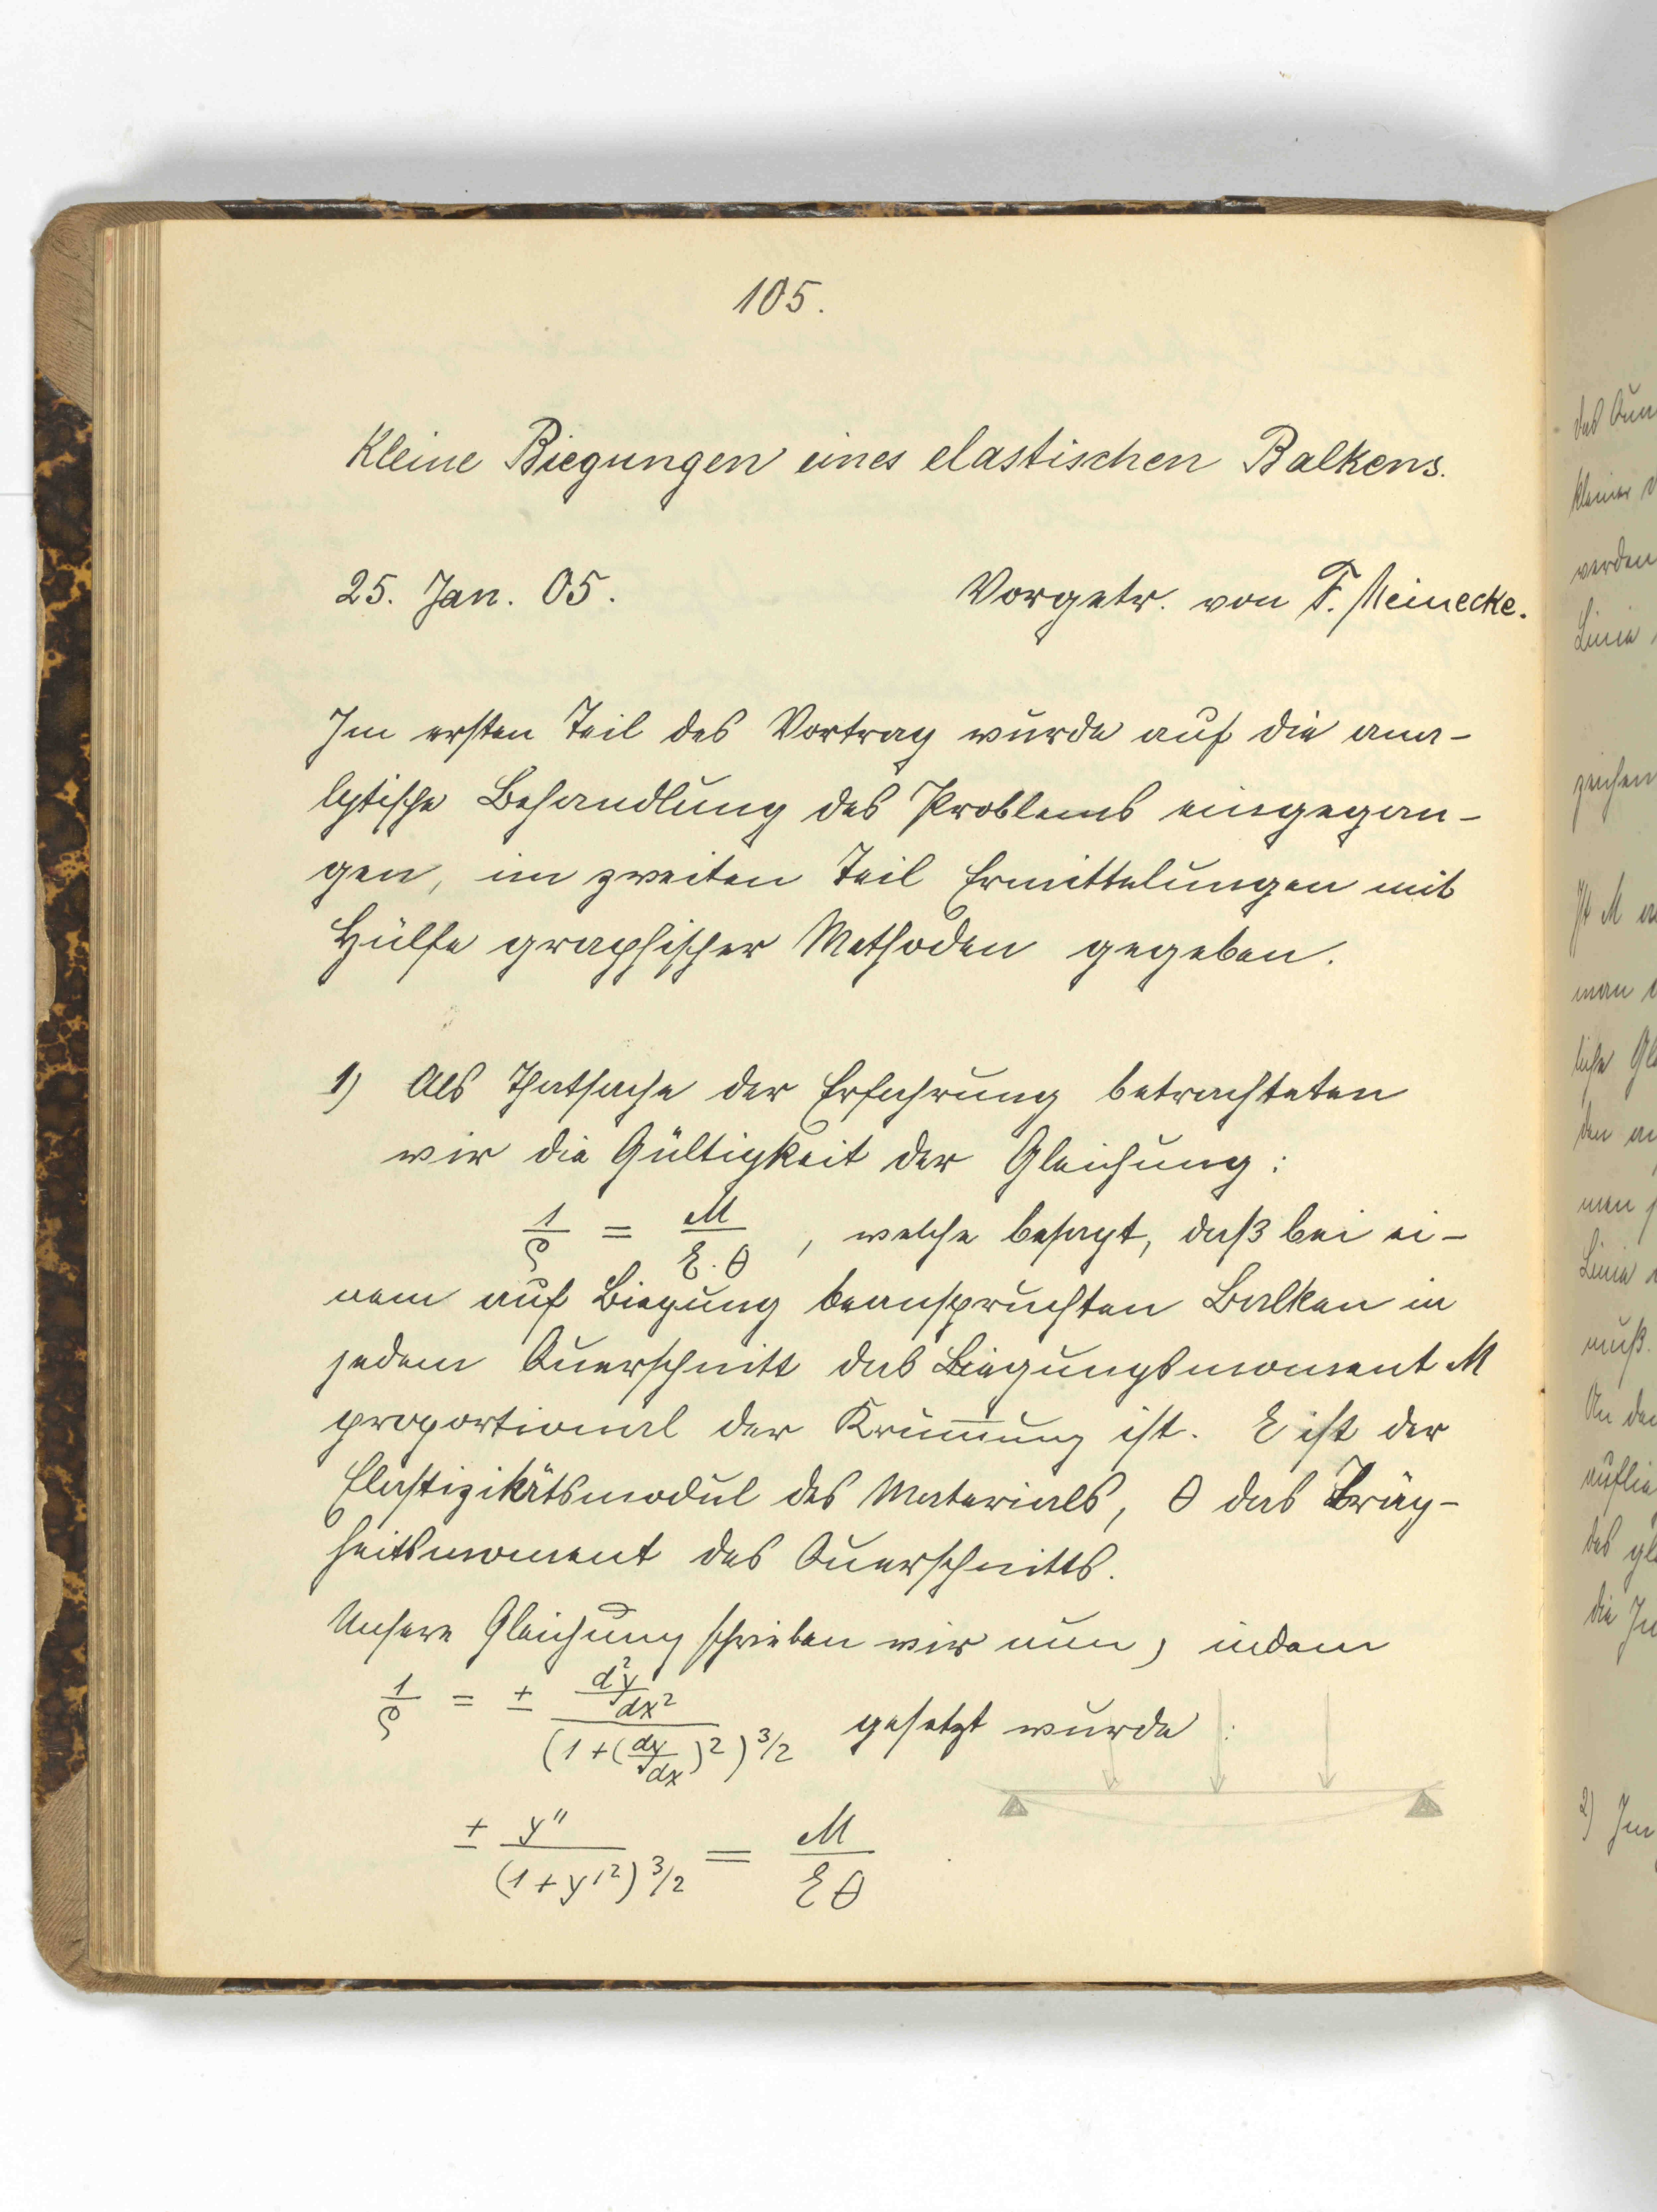 105.
Kleine Biegungen eines elastischen Balkens.
25. Jan. 05.
Vorgetr. von F. Meinecke.
Im ersten Teil des Vortrag wurde auf die ana-
lytische Behandlung des Problems eingegan-
gen, im zweiten Teil Ermittelungen mit
Hülfe graphischer Methoden gegeben.
1) Als Thatsache der Erfahrung betrachteten
wir die Gültigkeit der Gleichung:
1/ρ = M/(E·θ), welche besagt, daß bei ei-
nem auf Biegung beanspruchten Balken in
jedem Querschnitt das Biegungsmoment M
proportional der Krüm̅ung ist. E ist der
Elastizikätsmodul des Materials, θ das Träg-
heitsmoment des Querschnitts.
Unsere Gleichung schrieben wir nun, indem
1/ρ = ± (d²y/dx²)/(1+(dy/dx)²)^3/2 gesetzt wurde:
± y''/(1+y'²)^3/2 = M/(Eθ)
kleiner
werden
Linie
zeichen
man
den
Linie
muß.
2)